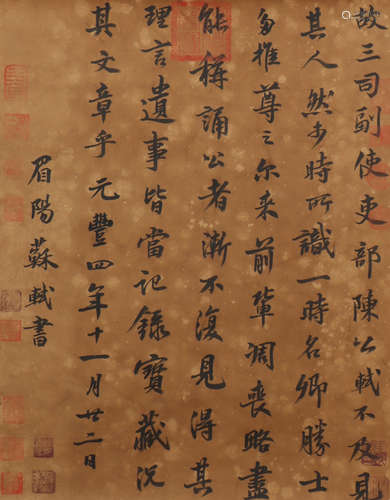 故三司副使吏部陳公軾不及見
其人然少時所識一時名卿勝士
多推尊之尔来前輩凋喪略盡
能稱誦公者漸不復見得其
理言遺事皆當記錄寶藏況
其文章乎元豐四年十一月廿二日
眉陽蘇軾書